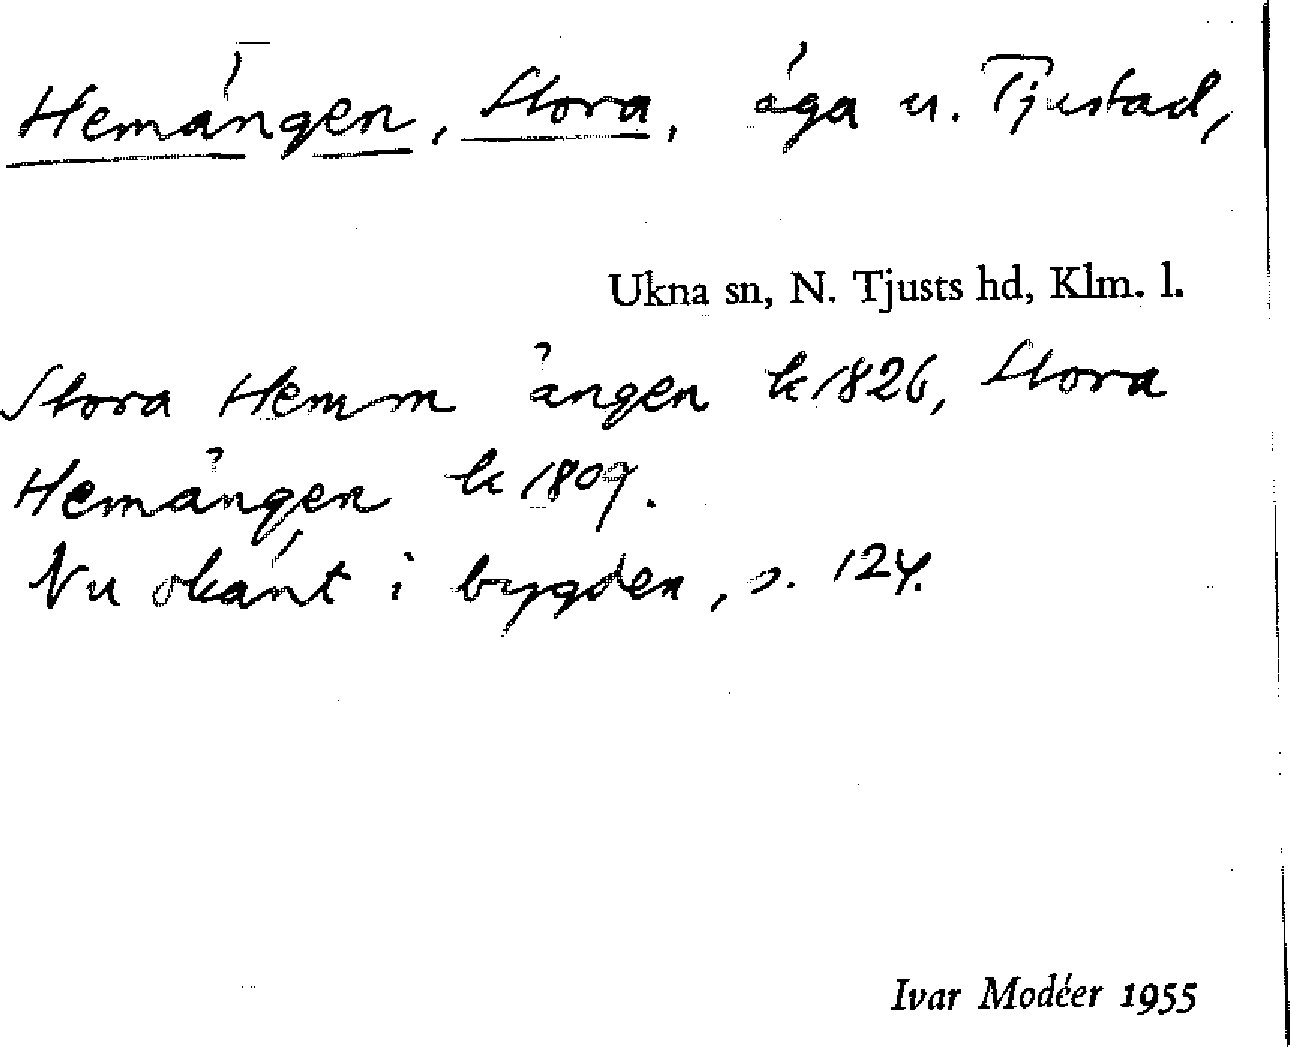 Hemängen, Stora, äga u. Tjustad,
Ukna sn, N. Tjusts hd, Klm. l.
Stora Hemm ängen k 1826, Stora
Hemängen k 1807.
Nu okänt i bygden, s. 124.
Ivar Modéer 1955